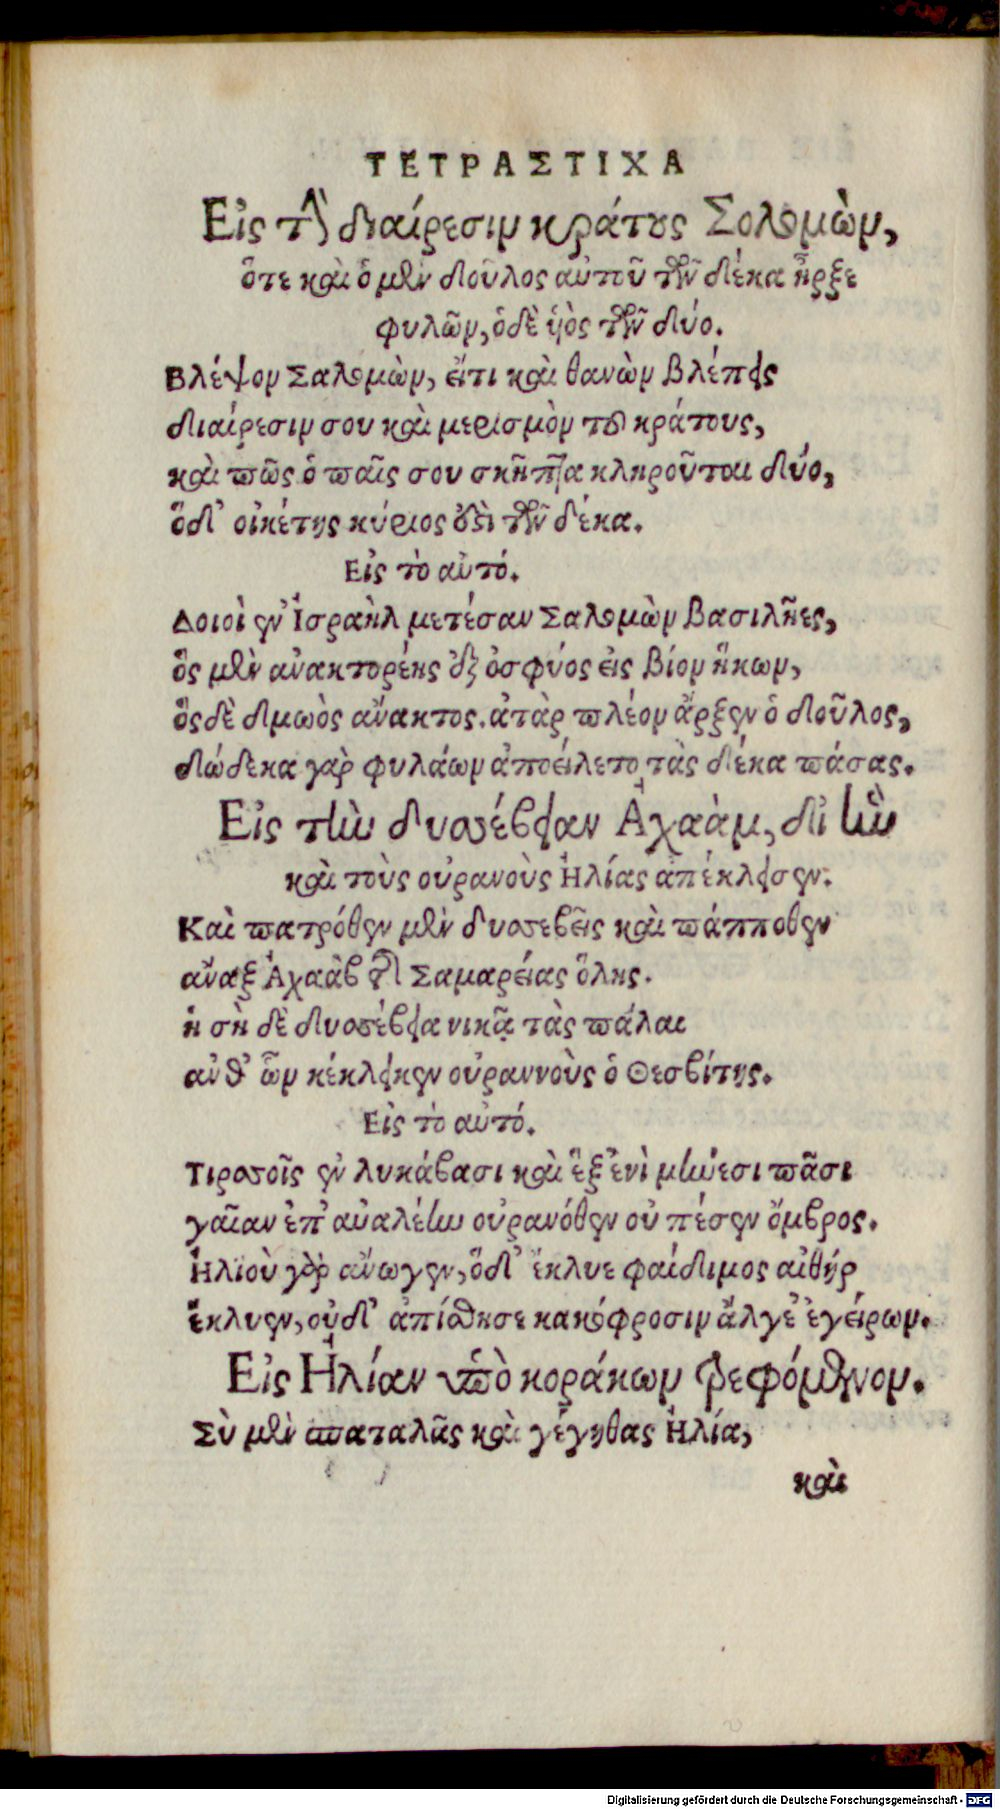 ΤΕΤΡΑΣΤΙΧΑ
Εἰς τὴν διαίρεσιν κράτους Σολομὼν,
ὅτε καὶ ὁ μὲν δοῦλος αὐτοῦ τῶν δέκα ἦρξε
φυλῶν, ὁδὲ ὑὸς τῶν δύο.
Βλέψον Σαλομὼν, εἴτι καὶ θανὼν βλέπεις
διαίρεσιν σου καὶ μερισμὸν τοῦ κράτους,
καὶ πῶς ὁ παῖς σου σκῆπτρα κληροῦται δύο,
ὅδ' οἰκέτης κύριος ἐστὶ τῶν δέκα.
Εἰς τὸ αὐτό.
Δοιοὶ ἐν Ἰσραὴλ μετέσαν Σαλομὼν βασιλῆες,
ὃς μὲν ἀνακτορέης ἐξ ὀσφύος εἰς βίον ἥκων,
ὃς δὲ δμωὸς ἄνακτος. ἀτὰρ πλέον ἄρξεν ὁ δοῦλος,
δώδεκα γὰρ φυλάων ἀποείλετο τὰς δέκα πάσας.
Εἰς τὴν δυσσέβειαν Ἀχαὰμ, δι' ἣν
καὶ τοὺς οὐρανοὺς Ἠλίας ἀπέκλεισεν.
Καὶ πατρόθεν μὲν δυσσεβεῖς καὶ πάπποθεν
ἄναξ Ἀχαὰβ τῆς Σαμαρείας ὅλης.
ἡ σὴ δὲ δυσσέβεια νικᾷ τὰς πάλαι
ἀνθ' ὧν κέκλεικεν οὐραννοὺς ὁ Θεσβίτης.
Εἰς τὸ αὐτό.
Τιρσσοῖς ἐν λυκάβασι καὶ ἓξ ἐνὶ μήνεσι πᾶσι
γαῖαν ἐπ' αὐαλέην οὐρανόθεν οὐ πέσεν ὄμβρος.
Ἠλιοὺ γὰρ ἄνωγεν, ὅδ' ἔκλυε φαίδιμος αἰθήρ
ἔκλυεν, οὐδ' ἀπίθησε κακόφροσιν ἄλγε' ἐγείρων.
Εἰς Ἠλίαν ὑπὸ κοράκων τρεφόμενον.
Σὺ μὲν σπαταλᾷς καὶ γέγηθας Ἠλία,
καὶ
Digitalisierung gefördert durch die Deutsche Forschungsgemeinschaft - DFG